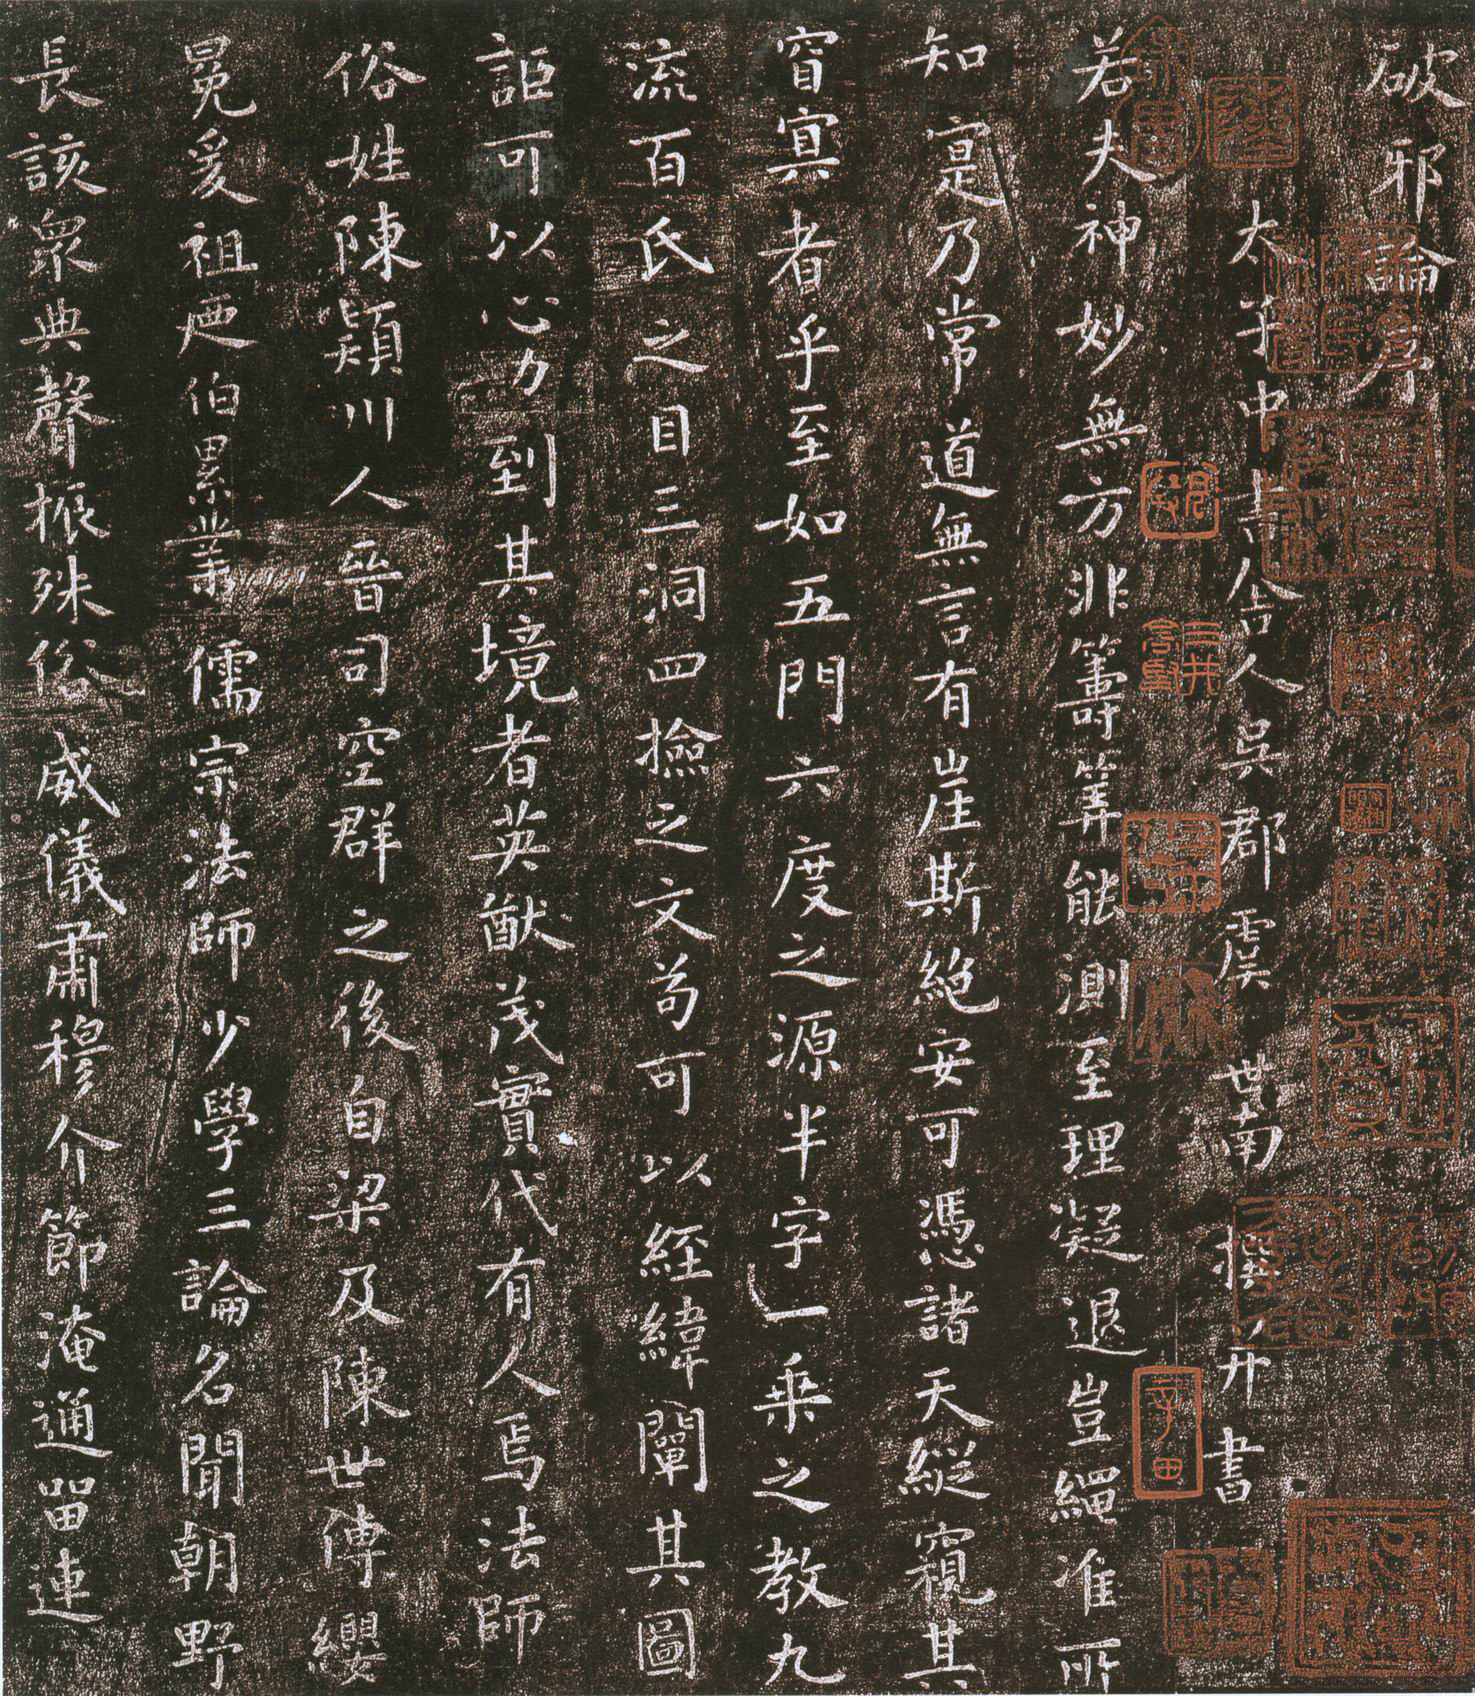 破邪論序
太子中書舍人吳郡虞世南撰并書
若夫神妙無方非籌筭能測至理凝邈豈繩准所
知寔乃常道無言有崖斯絶安可憑諸天縱窺其
窅寘者乎至如五門六度之源半字一乘之教九
流百氏之目三洞四撿之文苟可以經緯闡其圖
詎可以心力到其境者英猷茂實代有人焉法師
俗姓陳潁川人晉司空群之後自梁及陳世傳纓
冕爰祖迺伯累業儒宗法師少學三論名聞朝野
長該衆典聲振殊俗威儀肅穆介節淹通留連